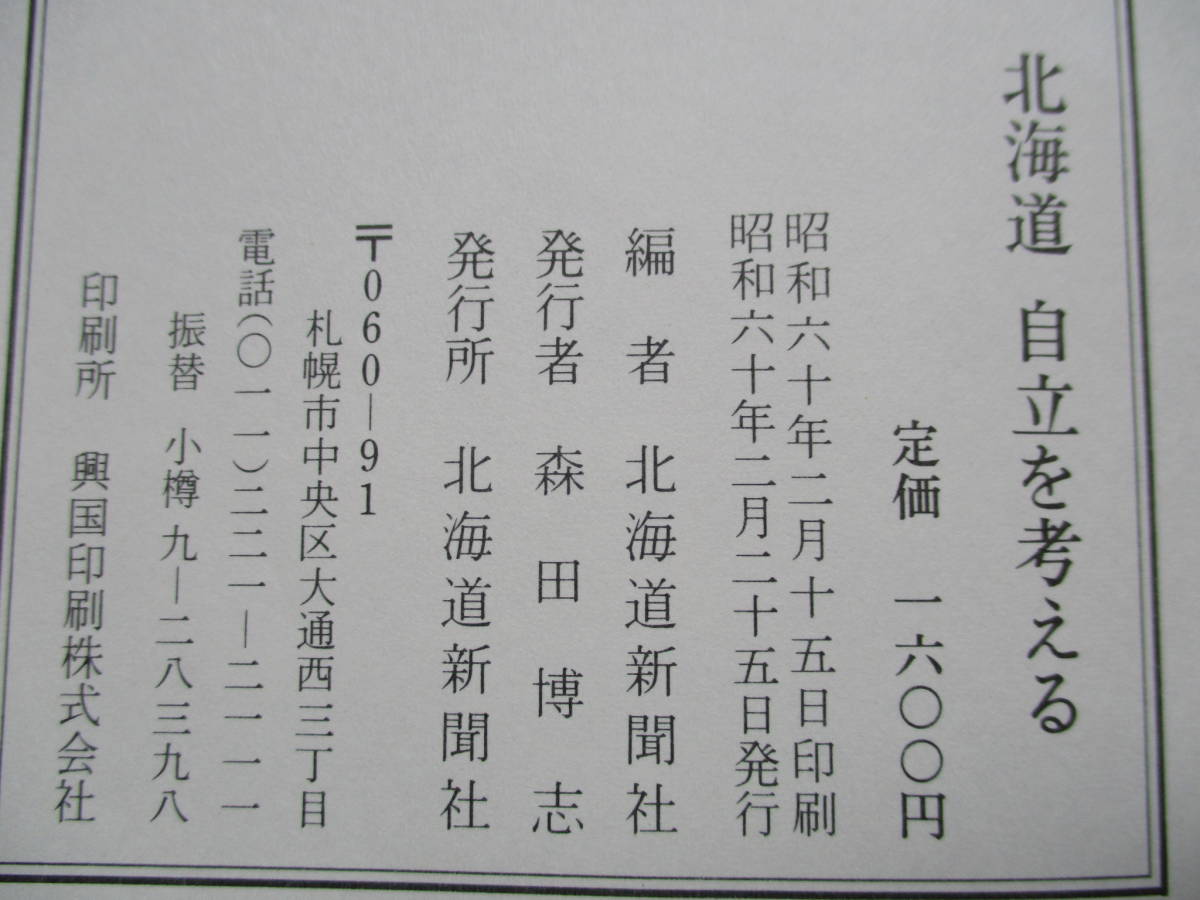 北海道 自立を考える
定価 一六〇〇円
昭和六十年二月十五日印刷
昭和六十年二月二十五日発行
編者 北海道新聞社
発行者 森田博志
発行所 北海道新聞社
〒060―91
札幌市中央区大通西三丁目
電話(〇一一)二二一―二一一一
振替 小樽九―二八三九八
印刷所 興国印刷株式会社